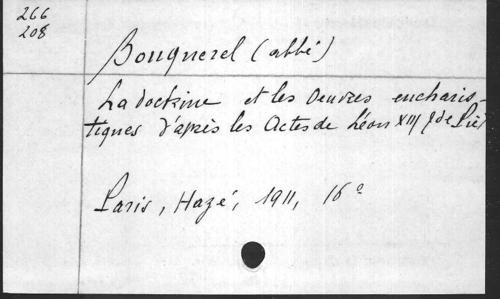 266
208
Bouquerel (abbé)
La doctrine et les Oeuvres eucharis-
tiques d'après les Actes de Léon XIII & de Pie
Paris, Hazé, 1911, 16°